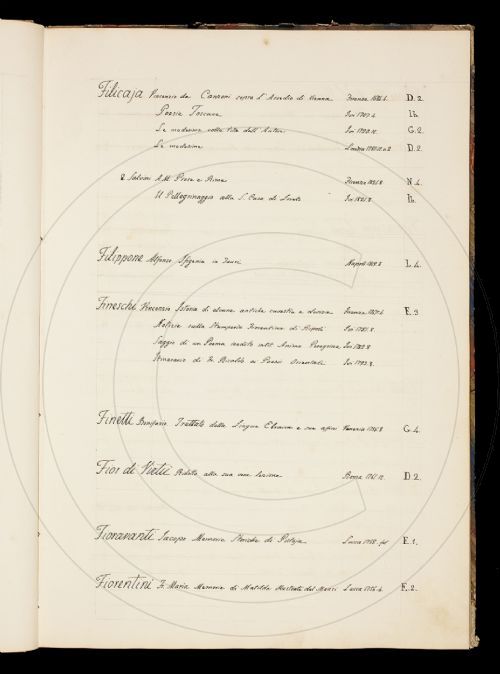 Filicaja Vincenzo da Canzoni sopra l'Assedio di Vienna Firenze 1684.4. D.2.
Poesie Toscane Ivi 1707.4. Ib.
Le medesime colla vita dell'Autore Ivi 1720.12. G.2.
Le medesime Londra D.2.
e Salvini A.M. Prose e Rime Firenze 1821.8 N.4.
Il Pellegrinaggio alla S. Casa di Loreto Ivi 1821.8. Ib.
Filippone Alfonso Ifigenia in Tauri Napoli L.4.
Fineschi Vincenzio Istoria di alcune antiche carestie e dovizie Firenze 1767.4. E.3
Notizie sulla Stamperia Fiorentina di Ripoli Ivi 1781.8.
Saggio di un Poema inedito intit. Anima Peregrina Ivi 1782.8
Itinerario di Fr. Ricoldo ai Paesi Orientali Ivi 1793.8.
Finetti Bonifazio Trattato della Lingua Ebraica e sue affini Venezia 1756.8 G.4.
Fior di Virtù Ridotto alla sua vera lezione Roma 12. D.2.
Fioravanti Jacopo Memorie Storiche di Pistoja Lucca 1758. fol E.1.
Fiorentini Fr. Maria Memorie di Matilda Lucca 1756.4. E.2.